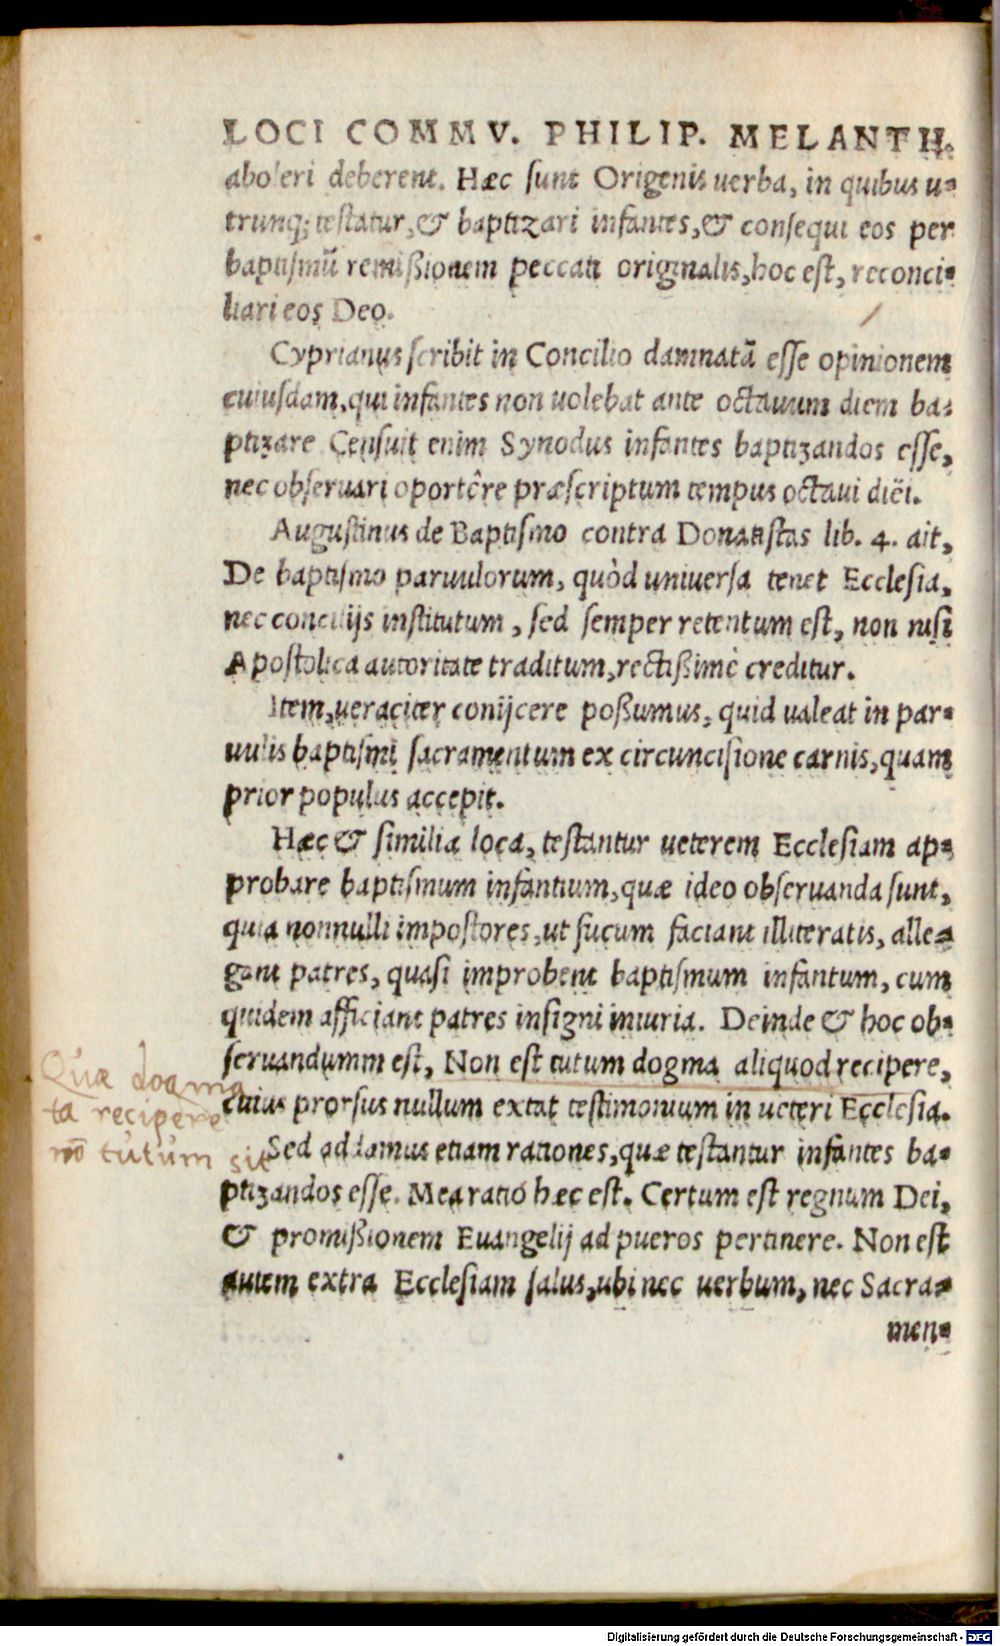 LOCI COMMV. PHILIP. MELANTH.
aboleri deberent. Hæc sunt Origenis uerba, in quibus u-
trunq; testatur, & baptizari infantes, & consequi eos per
baptismũ remißionem peccati originalis, hoc est, reconci-
liari eos Deo.
Cyprianus scribit in Concilio damnatã esse opinionem
cuiusdam, qui infantes non uolebat ante octauum diem ba-
ptizare Censuit enim Synodus infantes baptizandos esse,
nec obseruari oportêre præscriptum tempus octaui diëi.
Augustinus de Baptismo contra Donatistas lib. 4. ait,
De baptismo paruulorum, quòd uniuersa tenet Ecclesia,
nec concilijs institutum, sed semper retentum est, non nisi
Apostolica autoritate traditum, rectißimè creditur.
Item, ueraciter conijcere poßumus, quid ualeat in par-
uulis baptismi sacramentum ex circuncisione carnis, quam
prior populus accepit.
Hæc & similia loca, testantur ueterem Ecclesiam ap-
probare baptismum infantium, quæ ideo obseruanda sunt,
quia nonnulli impostores, ut fucum faciant illiteratis, alle-
gant patres, quasi improbent baptismum infantum, cum
quidem afficiant patres insigni iniuria. Deinde & hoc ob-
seruandumm est, Non est tutum dogma aliquod recipere,
cuius prorsus nullum extat testimonium in ueteri Ecclesia.
Quæ dogma
ta recipere
nõ tutum sit
Sed addamus etiam rationes, quæ testantur infantes ba-
ptizandos esse. Mea ratio hæc est. Certum est regnum Dei,
& promißionem Euangelij ad pueros pertinere. Non est
autem extra Ecclesiam salus, ubi nec uerbum, nec Sacra-
men-
Digitalisierung gefördert durch die Deutsche Forschungsgemeinschaft - DFG